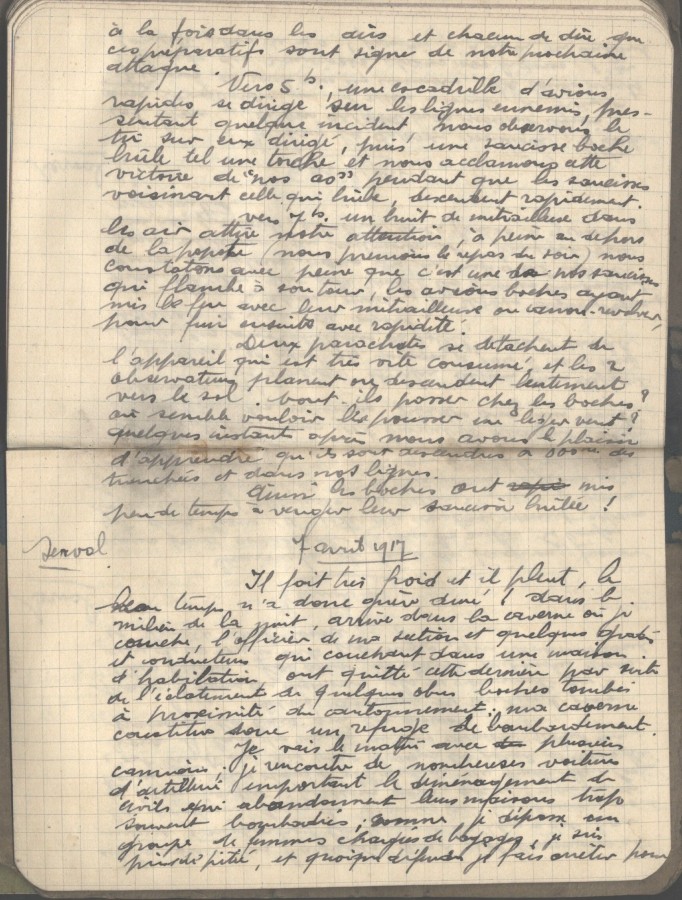 à la fois dans les airs et chacun de dire que
ces préparatifs sont signe de notre prochaine
attaque.
Vers 5 h., une escadrille d'avions
rapides se dirige sur les lignes ennemis, pres-
sentant quelque incident nous observons le
tir sur eux dirigé, puis une saucisse boche
brûle tel une torche et nous acclamons cette
victoire de "nos as" pendant que les saucisses
voisinant celle qui brûle, descendent rapidement.
Vers 7 h. un bruit de mitrailleuse dans
les air attire notre attention, à peine au dehors
de la popote (nous prenions le repas du soir) nous
constatons avec peine que c'est une de nos saucisses
qui flambe à son tour, les avions boches ayant
mis le feu avec leur mitrailleuse ou canon-revolver,
pour fuir ensuite avec rapidité.
Deux parachutes se détachent de
l'appareil qui est très vite consumé, et les 2
observateurs planent ou descendent lentement
vers le sol. Vont-ils passer chez les boches?
où semble vouloir les pousser un léger vent?
quelques instant après nous avons le plaisir
d'apprendre qu'ils sont descendus à des
tranchées et dans nos lignes.
Ainsi les boches ont mis
peu de temps à venger leur saucisse brûlée!
Serval
7 avril 1917
Il fait très froid et il pleut, le
beau temps n'a donc guère duré! dans le
milieu de la nuit, arrive dans la caverne où je
couche, l'officier de ma section et quelques gradés
et conducteurs qui couchant dans une maison
d'habitation, ont quitté cette dernière par suite
de l'éclatement de quelques obus boches tombés
à proximité du cantonnement; ma caverne
constitue donc un refuge de bombardement.
Je vais le matin avec plusieurs
camions; je rencontre de nombreuses voitures
d'artillerie emportant le déménagement de
civils qui abandonnent leurs maisons trop
souvent bombardées; comme je dépasse un
groupe de femmes chargées de bagages, je suis
pris de pitié, et quoique défendu je fais arrêter pour